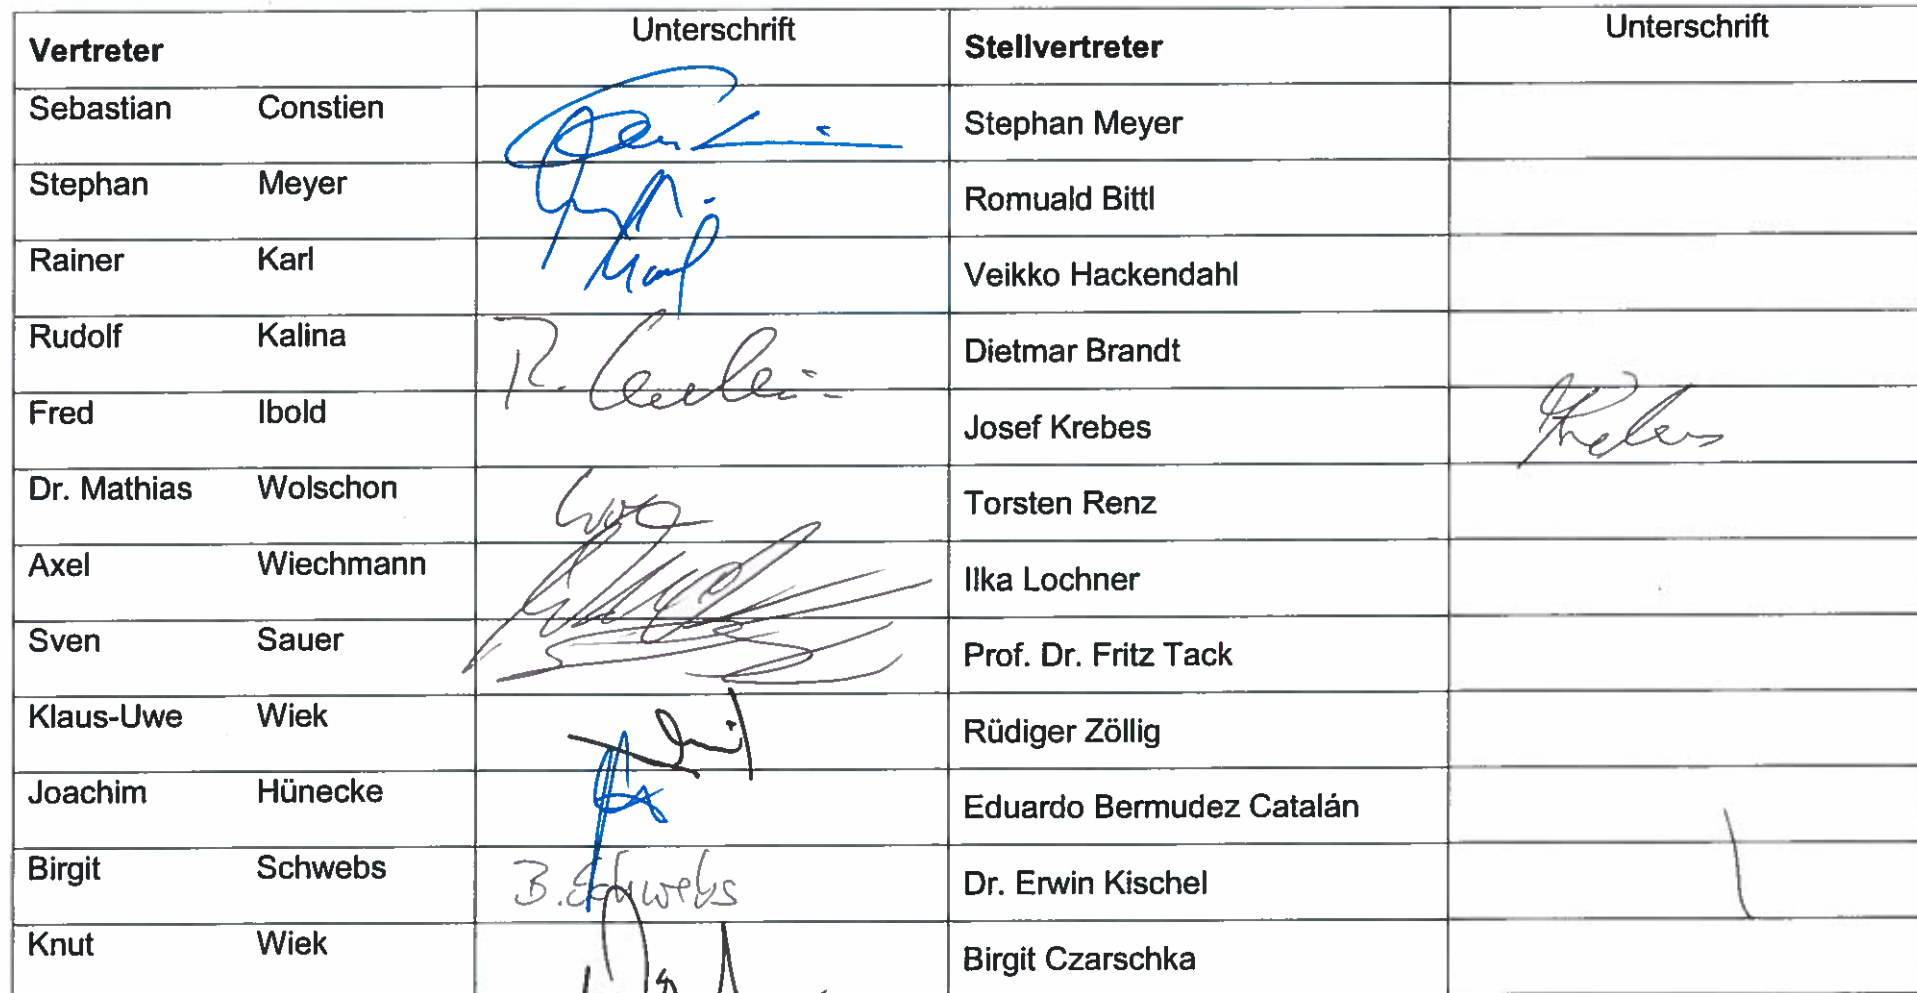 Vertreter Unterschrift Stellvertreter Unterschrift
Sebastian Constien Stephan Meyer
Stephan Meyer Romuald Bittl
Rainer Karl Veikko Hackendahl
Rudolf Kalina R. Dietmar Brandt
Fred Ibold Josef Krebes Krebes
Dr. Mathias Wolschon Torsten Renz
Axel Wiechmann Ilka Lochner
Sven Sauer Prof. Dr. Fritz Tack
Klaus-Uwe Wiek Rüdiger Zöllig
Joachim Hünecke Eduardo Bermudez Catalán
Birgit Schwebs B. Schwebs Dr. Erwin Kischel
Knut Wiek Birgit Czarschka